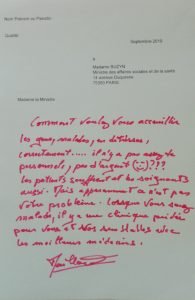 Nom Prénom ou Pseudo
Qualité
Septembre 2019
Madame BUZYN
Ministre des affaires sociales et de la santé
14 avenue Duquesne
75350 PARIS
Madame la Ministre
Comment voulez vous accueillir
les gens, malades, en détresse,
correctement..... il n'y a pas assez de
personnels, peu d'argent (☹)???
les patients souffrent et les soignants
aussi. Mais apparemment ce n'est pas
votre problème. Lorsque vous serez
malade, il y a une clinique privée
pour vous et vos semblables avec
les meilleurs médecins.